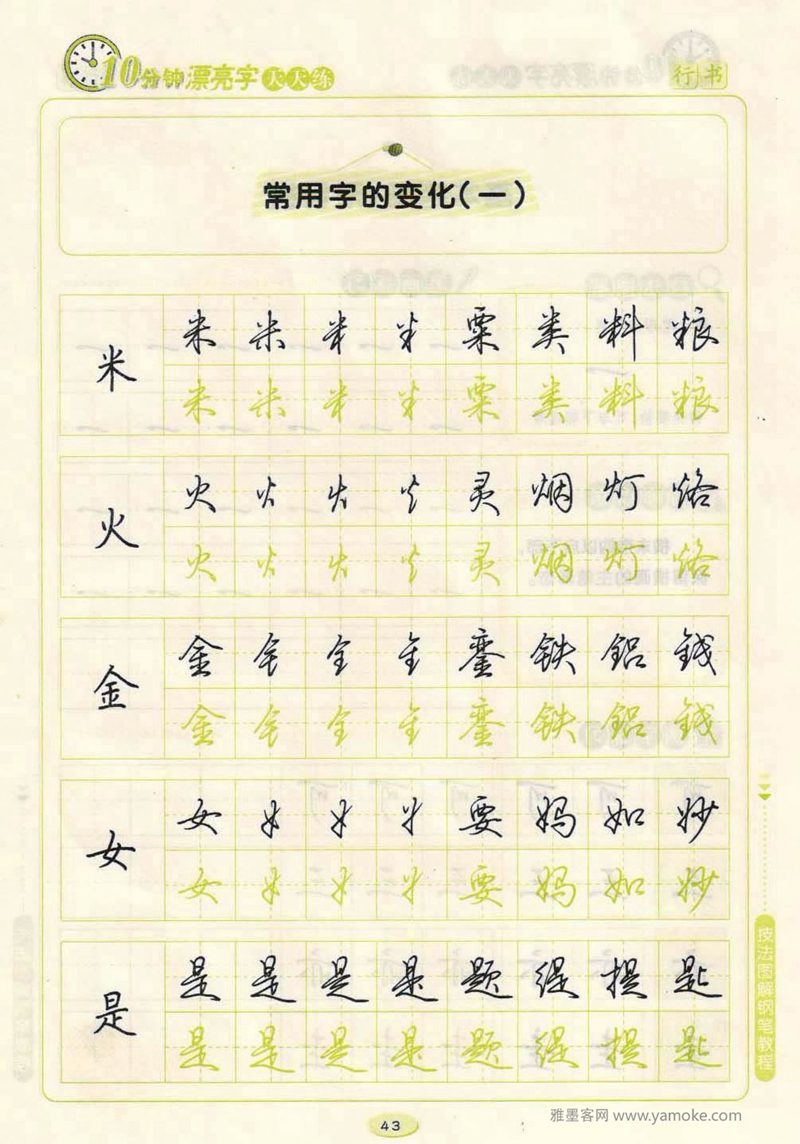 10分钟漂亮字天天练
行书
常用字的变化(一)
米 米 米 米 米 粟 类 料 粮
米 米 米 米 粟 类 料 粮
火 火 火 火 火 灵 烟 灯 烙
火 火 火 火 灵 烟 灯 烙
金 金 钅 钅 钅 銮 铁 铝 钱
金 钅 钅 钅 銮 铁 铝 钱
女 女 女 女 女 要 妈 如 妙
女 女 女 女 要 妈 如 妙
是 是 是 是 是 题 缇 提 匙
是 是 是 是 题 缇 提 匙
技法图解钢笔教程
43
雅墨客网 www.yamoke.com